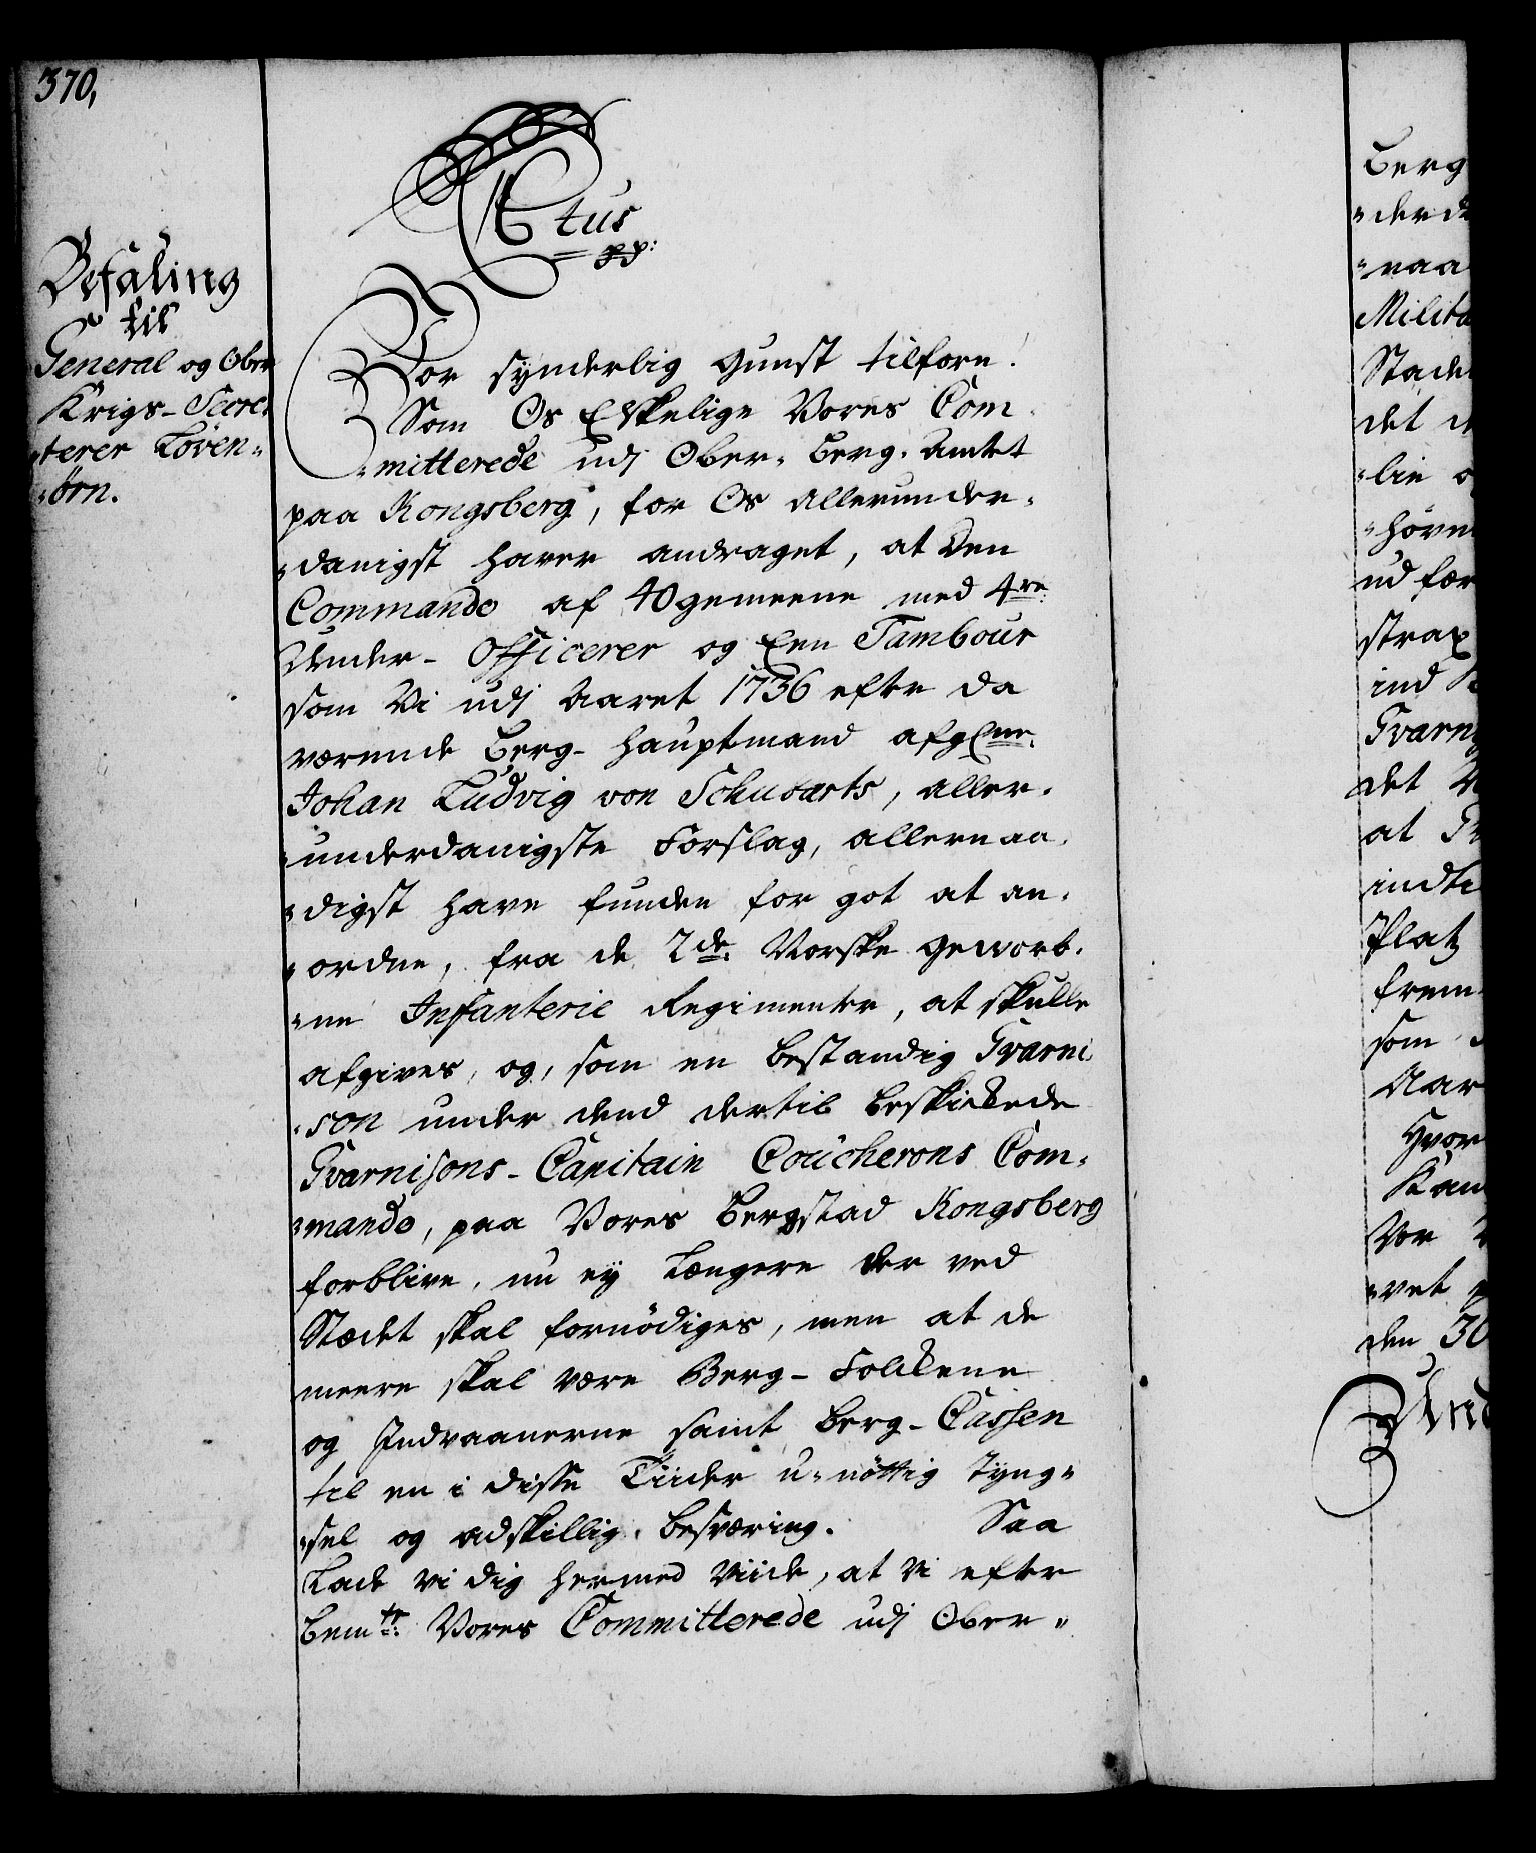 370,
Befaling
til
General og Ober
Krigs-Secre
terer Löven-
örn.
Ctus
pp:
Vor synderlig Gunst tilforn!
Som Os Elskelige Vores Com-
mitterede udj Ober-Berg-Amtet
paa Kongsberg, for Os allerunder-
danigst haver andraget, at den
Commando af 40 gemeene med 4re.
Under-Officerer og Een Tambour
som Vi udj Aaret 1736 efter da
værende Berg-Hauptmand afgne.
Johan Ludvig von Schubarts, aller-
underdanigste Forslag, allernaa-
digst have funden for got at an-
ordne, fra de 2de. Norske geworb-
ne Infanterie Regimenter, at skulle
afgives, og, som en bestandig Gvarni
son under dend dertil beskickede
Gvarnisons-Capitain Coucherons Com-
mando, paa Vores Bergstad Kongsberg
forblive, nu ey længere der ved
Stædet skal fornödiges, men at de
meere skal være Berg-Folckene
og Indvaanerne samt Berg-Cassen
til en i disse Tiider u-nöttig Tyng-
sel og adskillig Besværing. Saa
Lade vi dig hermed Viide, at Vi efter
bemte. Vores Committerede udj Ober-
Berg
derda
naa
Milita
Stade
det d
lie o
höve
ud fær
strax
ind K
Gvarni
det V
at Gv
indti
Platz
frem
som
Aar
Hvor
Kan
Vor
vet p
den 30
And